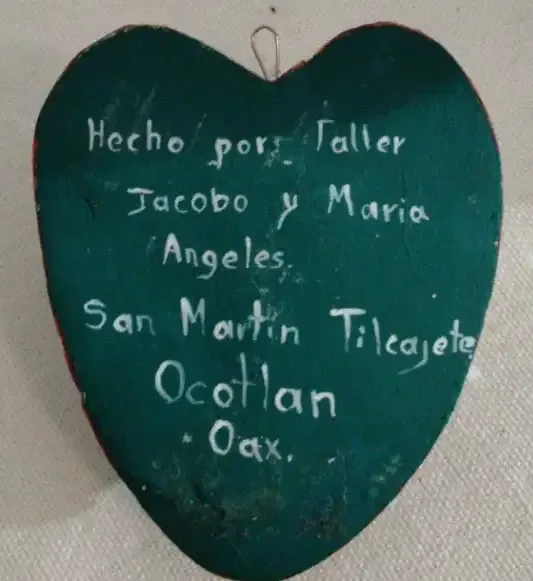 Hecho por: Taller
Jacobo y Maria
Angeles.
San Martin Tilcajete
Ocotlan
Oax.